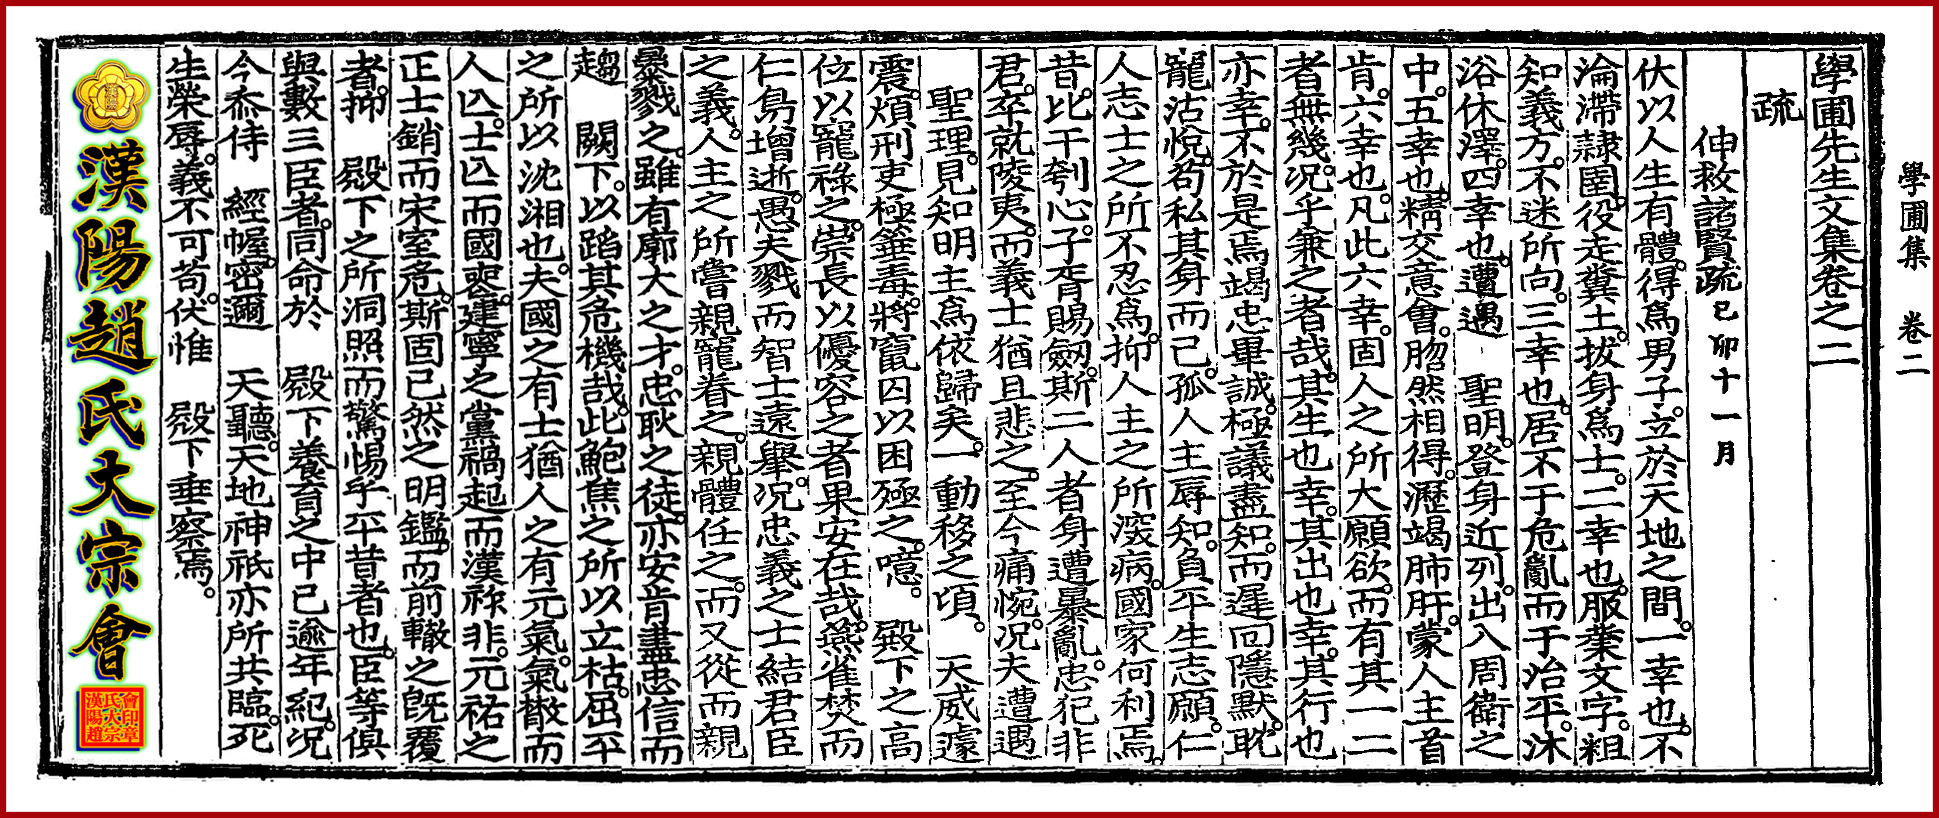 學圃集 卷二
學圃先生文集卷之二
疏
伸救諸賢疏 己卯十一月
伏以人生有體。得爲男子。立於天地之間。一幸也。不
淪滯隷圉。役走糞土。拔身爲士。二幸也。服業文字。粗
知義方。不迷所向。三幸也。居不于危亂而于治平。沐
浴休澤。四幸也。遭遇 聖明。登身近列。出入周衛之
中。五幸也。精交意會。脗然相得。瀝竭肺肝。蒙人主首
肯。六幸也。凡此六幸。固人之所大願欲。而有其一二
者無幾。况乎兼之者哉。其生也幸。其出也幸。其行也
亦幸。不於是焉竭忠畢誠。極議盡知。而遲回隱默。耽
寵沽悅。苟私其身而已。孤人主辱知。負平生志願。仁
人志士之所不忍爲。抑人主之所深病。國家何利焉。
昔。比干刳心。子胥賜劒。斯二人者身遭暴亂。忠犯非
君。卒就陵夷。而義士猶且悲之。至今痛惋。况夫遭遇
聖理。見知明主爲依歸矣。一動移之頃。 天威遽
震。煩刑吏極箠毒。將竄囚以困殛之。噫。 殿下之高
位以寵祿之。崇長以優容之者果安在哉。燕雀焚而
仁鳥增逝。愚夫戮而智士遠擧。况忠義之士結君臣
之義。人主之所嘗親寵眷之。親體任之。而又從而親
㬥戮之。雖有廓大之才。忠耿之徒。亦安肯盡忠信而
趨 闕下。以蹈其危機哉。此鮑焦之所以立枯。屈平
之所以沈湘也。夫國之有士猶人之有元氣。氣散而
人亾。士亾而國喪。建寧之黨禍起而漢祚非。元祐之
正士銷而宋室危。斯固已然之明鑑。而前轍之旣覆
者。抑 殿下之所洞照而驚惕乎平昔者也。臣等俱
與數三臣者。同命於 殿下養育之中已逾年紀。况
今忝侍 經幄。密邇 天聽。天地神祇亦所共臨。死
生榮辱。義不可苟。伏惟 殿下垂察焉。
漢陽趙氏大宗會
漢陽趙
氏大宗
會印章